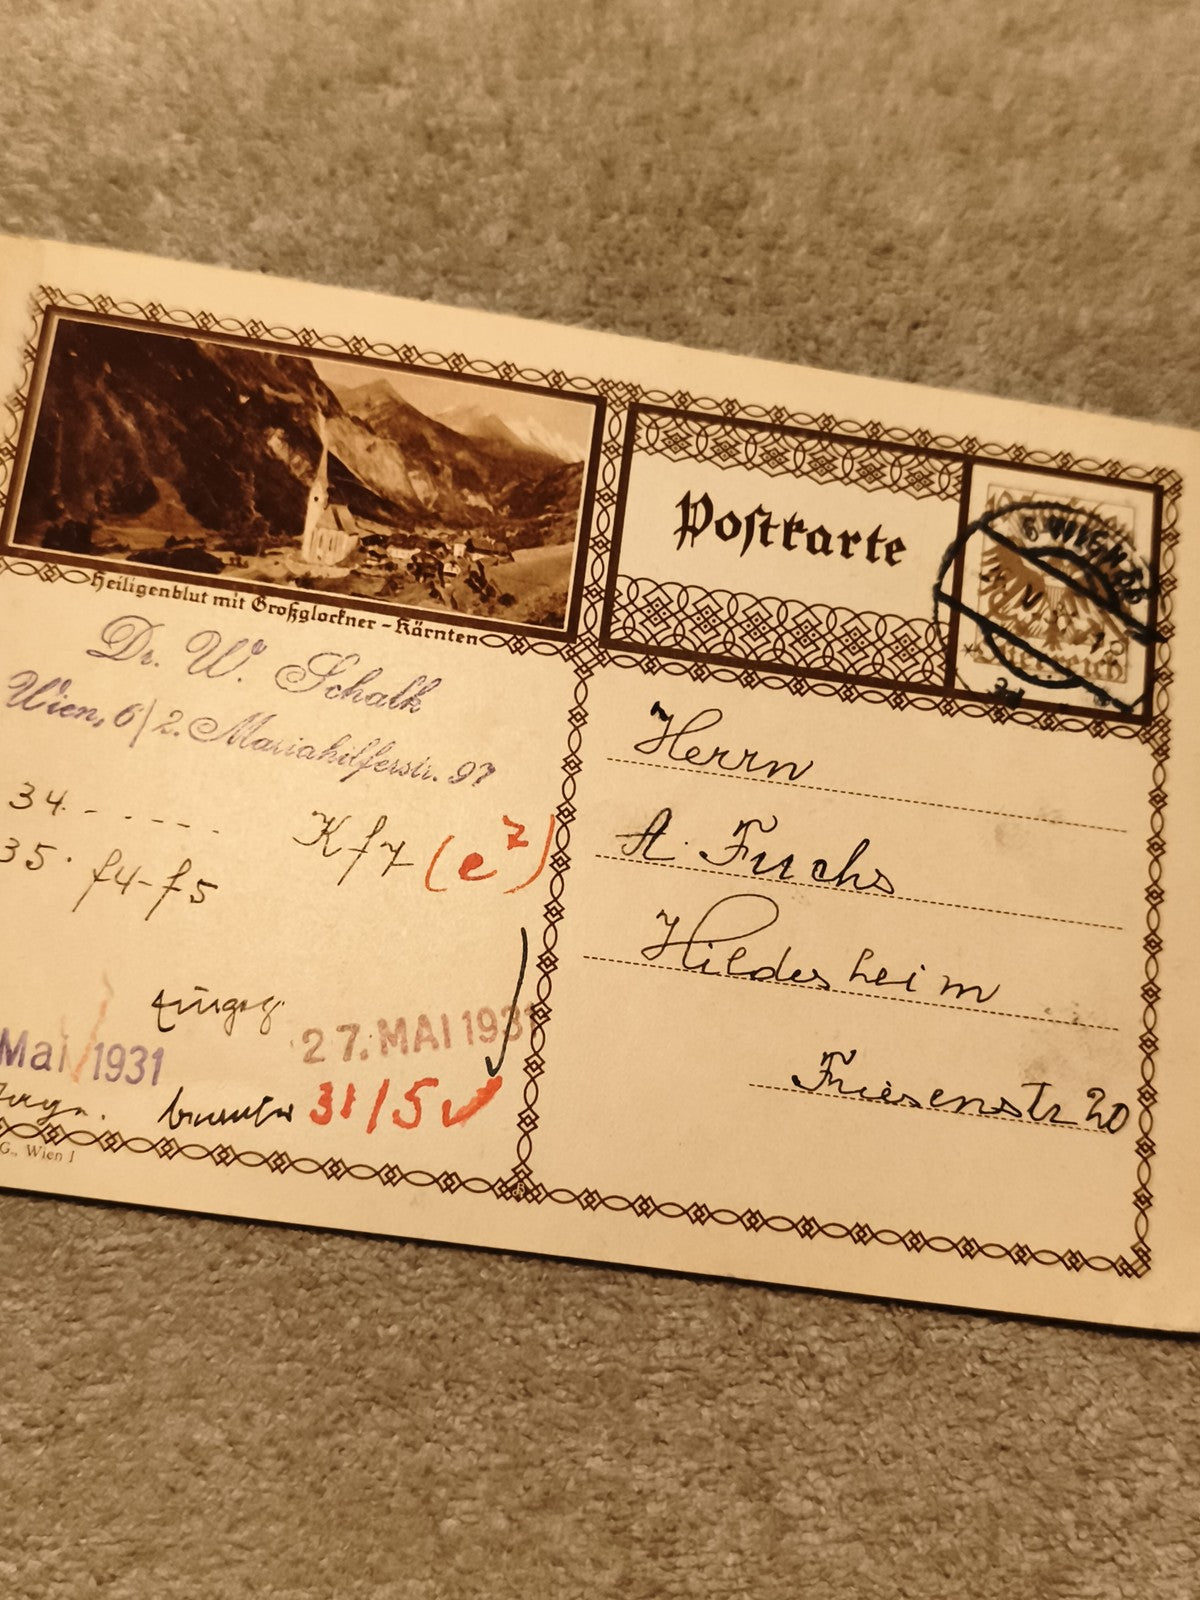 Heiligenblut mit Großglockner - Kärnten
Postkarte
Österreich
Dr. W. Schalk
Wien, 6/2. Mariahilferstr. 97
34. - - - - -
Kf7 (e7)
35. f4-f5
Eingeg.
27. MAI 1931
Mai 1931
31/5
G., Wien I
Herrn
A. Fuchs
Hildesheim
Friesenstr 20